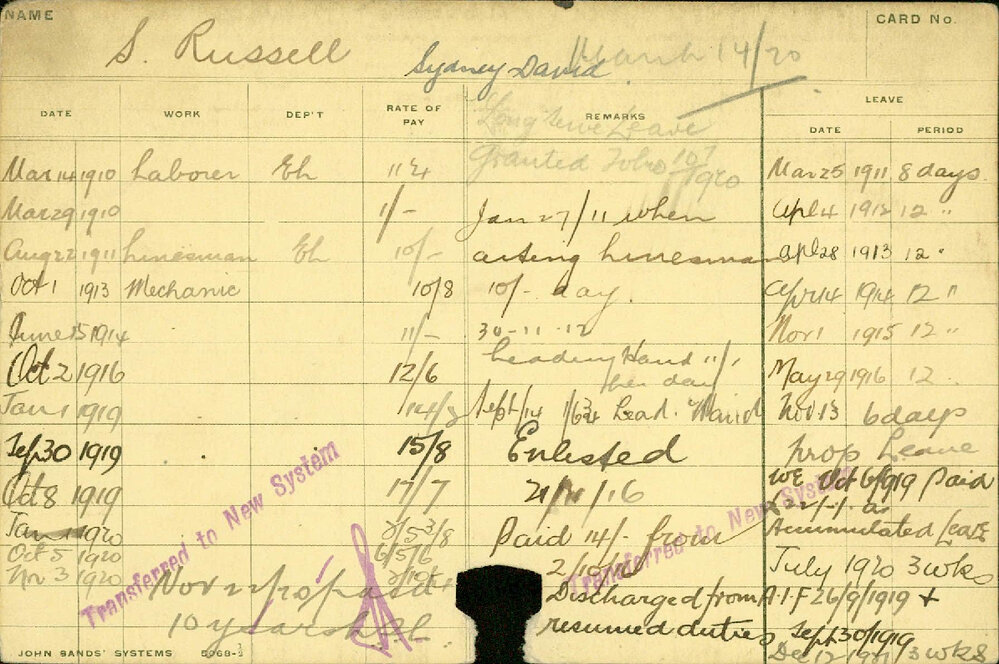 NAME
CARD No.
S. Russell
Sydney David
March 14/20
DATE WORK DEP'T RATE OF PAY REMARKS LEAVE
DATE PERIOD
Long Serve Leave
Granted 1920
Mar 14 1910 Laborer Eh Mar 25 1911 8 days
Mar 29 1910 Jan 27/11 when Apl 4 1912 12 "
Aug 22 1911 Linesman Eh 10/- acting Linesman Apl 28 1913 12 "
Oct 1 1913 Mechanic 10/8 10/- day. Apr 14 1914 12 "
June 15 1914 11/- 30-11-12 Nov 1 1915 12 "
Leading Hand 11/
per day
Oct 2 1916 12/6 May 29 1916 12
Jan 1 1919 Sept/14 Lead. Hand Nov 13 6 days
Sep 30 1919 15/8 Enlisted Prop Leave
Oct 8 1919 17/7 /16 WE Oct 6/1919 Paid
as
Jan 1920 Paid 14/- from Accumulated Leave
Oct 5 1920
Nov 3 1920 July 1920 3 wks
Nov
10 years
Discharged from A.I.F 26/9/1919 +
resumed duties Sept 30/1919
Dec 12 3 wks
Transferred to New System
Transferred to New System
JOHN SANDS' SYSTEMS